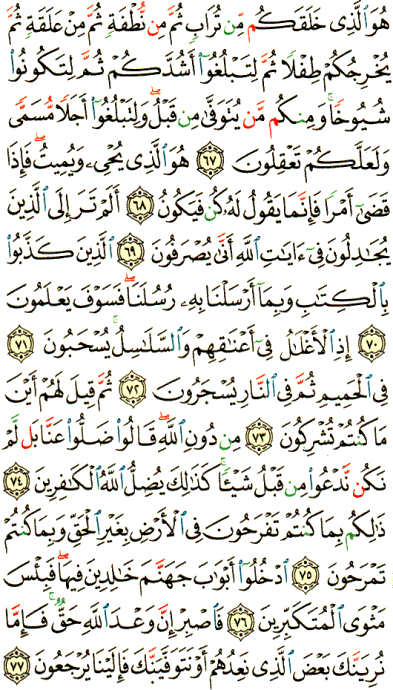 هُوَ الَّذِى خَلَقَكُم مِّن تُرَابٍ ثُمَّ مِن نُّطْفَةٍ ثُمَّ مِنْ عَلَقَةٍ ثُمَّ
يُخْرِجُكُمْ طِفْلًا ثُمَّ لِتَبْلُغُوٓا۟ أَشُدَّكُمْ ثُمَّ لِتَكُونُوا۟
شُيُوخًا ۚ وَمِنكُم مَّن يُتَوَفَّىٰ مِن قَبْلُ ۖ وَلِتَبْلُغُوٓا۟ أَجَلًا مُّسَمًّى
وَلَعَلَّكُمْ تَعْقِلُونَ ٦٧ هُوَ الَّذِى يُحْىِۦ وَيُمِيتُ ۖ فَإِذَا
قَضَىٰٓ أَمْرًا فَإِنَّمَا يَقُولُ لَهُۥ كُن فَيَكُونُ ٦٨ أَلَمْ تَرَ إِلَى الَّذِينَ
يُجَٰدِلُونَ فِىٓ ءَايَٰتِ اللَّهِ أَنَّىٰ يُصْرَفُونَ ٦٩ الَّذِينَ كَذَّبُوا۟
بِالْكِتَٰبِ وَبِمَآ أَرْسَلْنَا بِهِۦ رُسُلَنَا ۖ فَسَوْفَ يَعْلَمُونَ
٧٠ إِذِ الْأَغْلَٰلُ فِىٓ أَعْنَٰقِهِمْ وَالسَّلَٰسِلُ يُسْحَبُونَ ٧١
فِى الْحَمِيمِ ثُمَّ فِى النَّارِ يُسْجَرُونَ ٧٢ ثُمَّ قِيلَ لَهُمْ أَيْنَ
مَا كُنتُمْ تُشْرِكُونَ ٧٣ مِن دُونِ اللَّهِ ۖ قَالُوا۟ ضَلُّوا۟ عَنَّا بَل لَّمْ
نَكُن نَّدْعُوا۟ مِن قَبْلُ شَيْـًٔا ۚ كَذَٰلِكَ يُضِلُّ اللَّهُ الْكَٰفِرِينَ ٧٤
ذَٰلِكُم بِمَا كُنتُمْ تَفْرَحُونَ فِى الْأَرْضِ بِغَيْرِ الْحَقِّ وَبِمَا كُنتُمْ
تَمْرَحُونَ ٧٥ ادْخُلُوٓا۟ أَبْوَٰبَ جَهَنَّمَ خَٰلِدِينَ فِيهَا ۖ فَبِئْسَ
مَثْوَى الْمُتَكَبِّرِينَ ٧٦ فَاصْبِرْ إِنَّ وَعْدَ اللَّهِ حَقٌّ ۚ فَإِمَّا
نُرِيَنَّكَ بَعْضَ الَّذِى نَعِدُهُمْ أَوْ نَتَوَفَّيَنَّكَ فَإِلَيْنَا يُرْجَعُونَ ٧٧